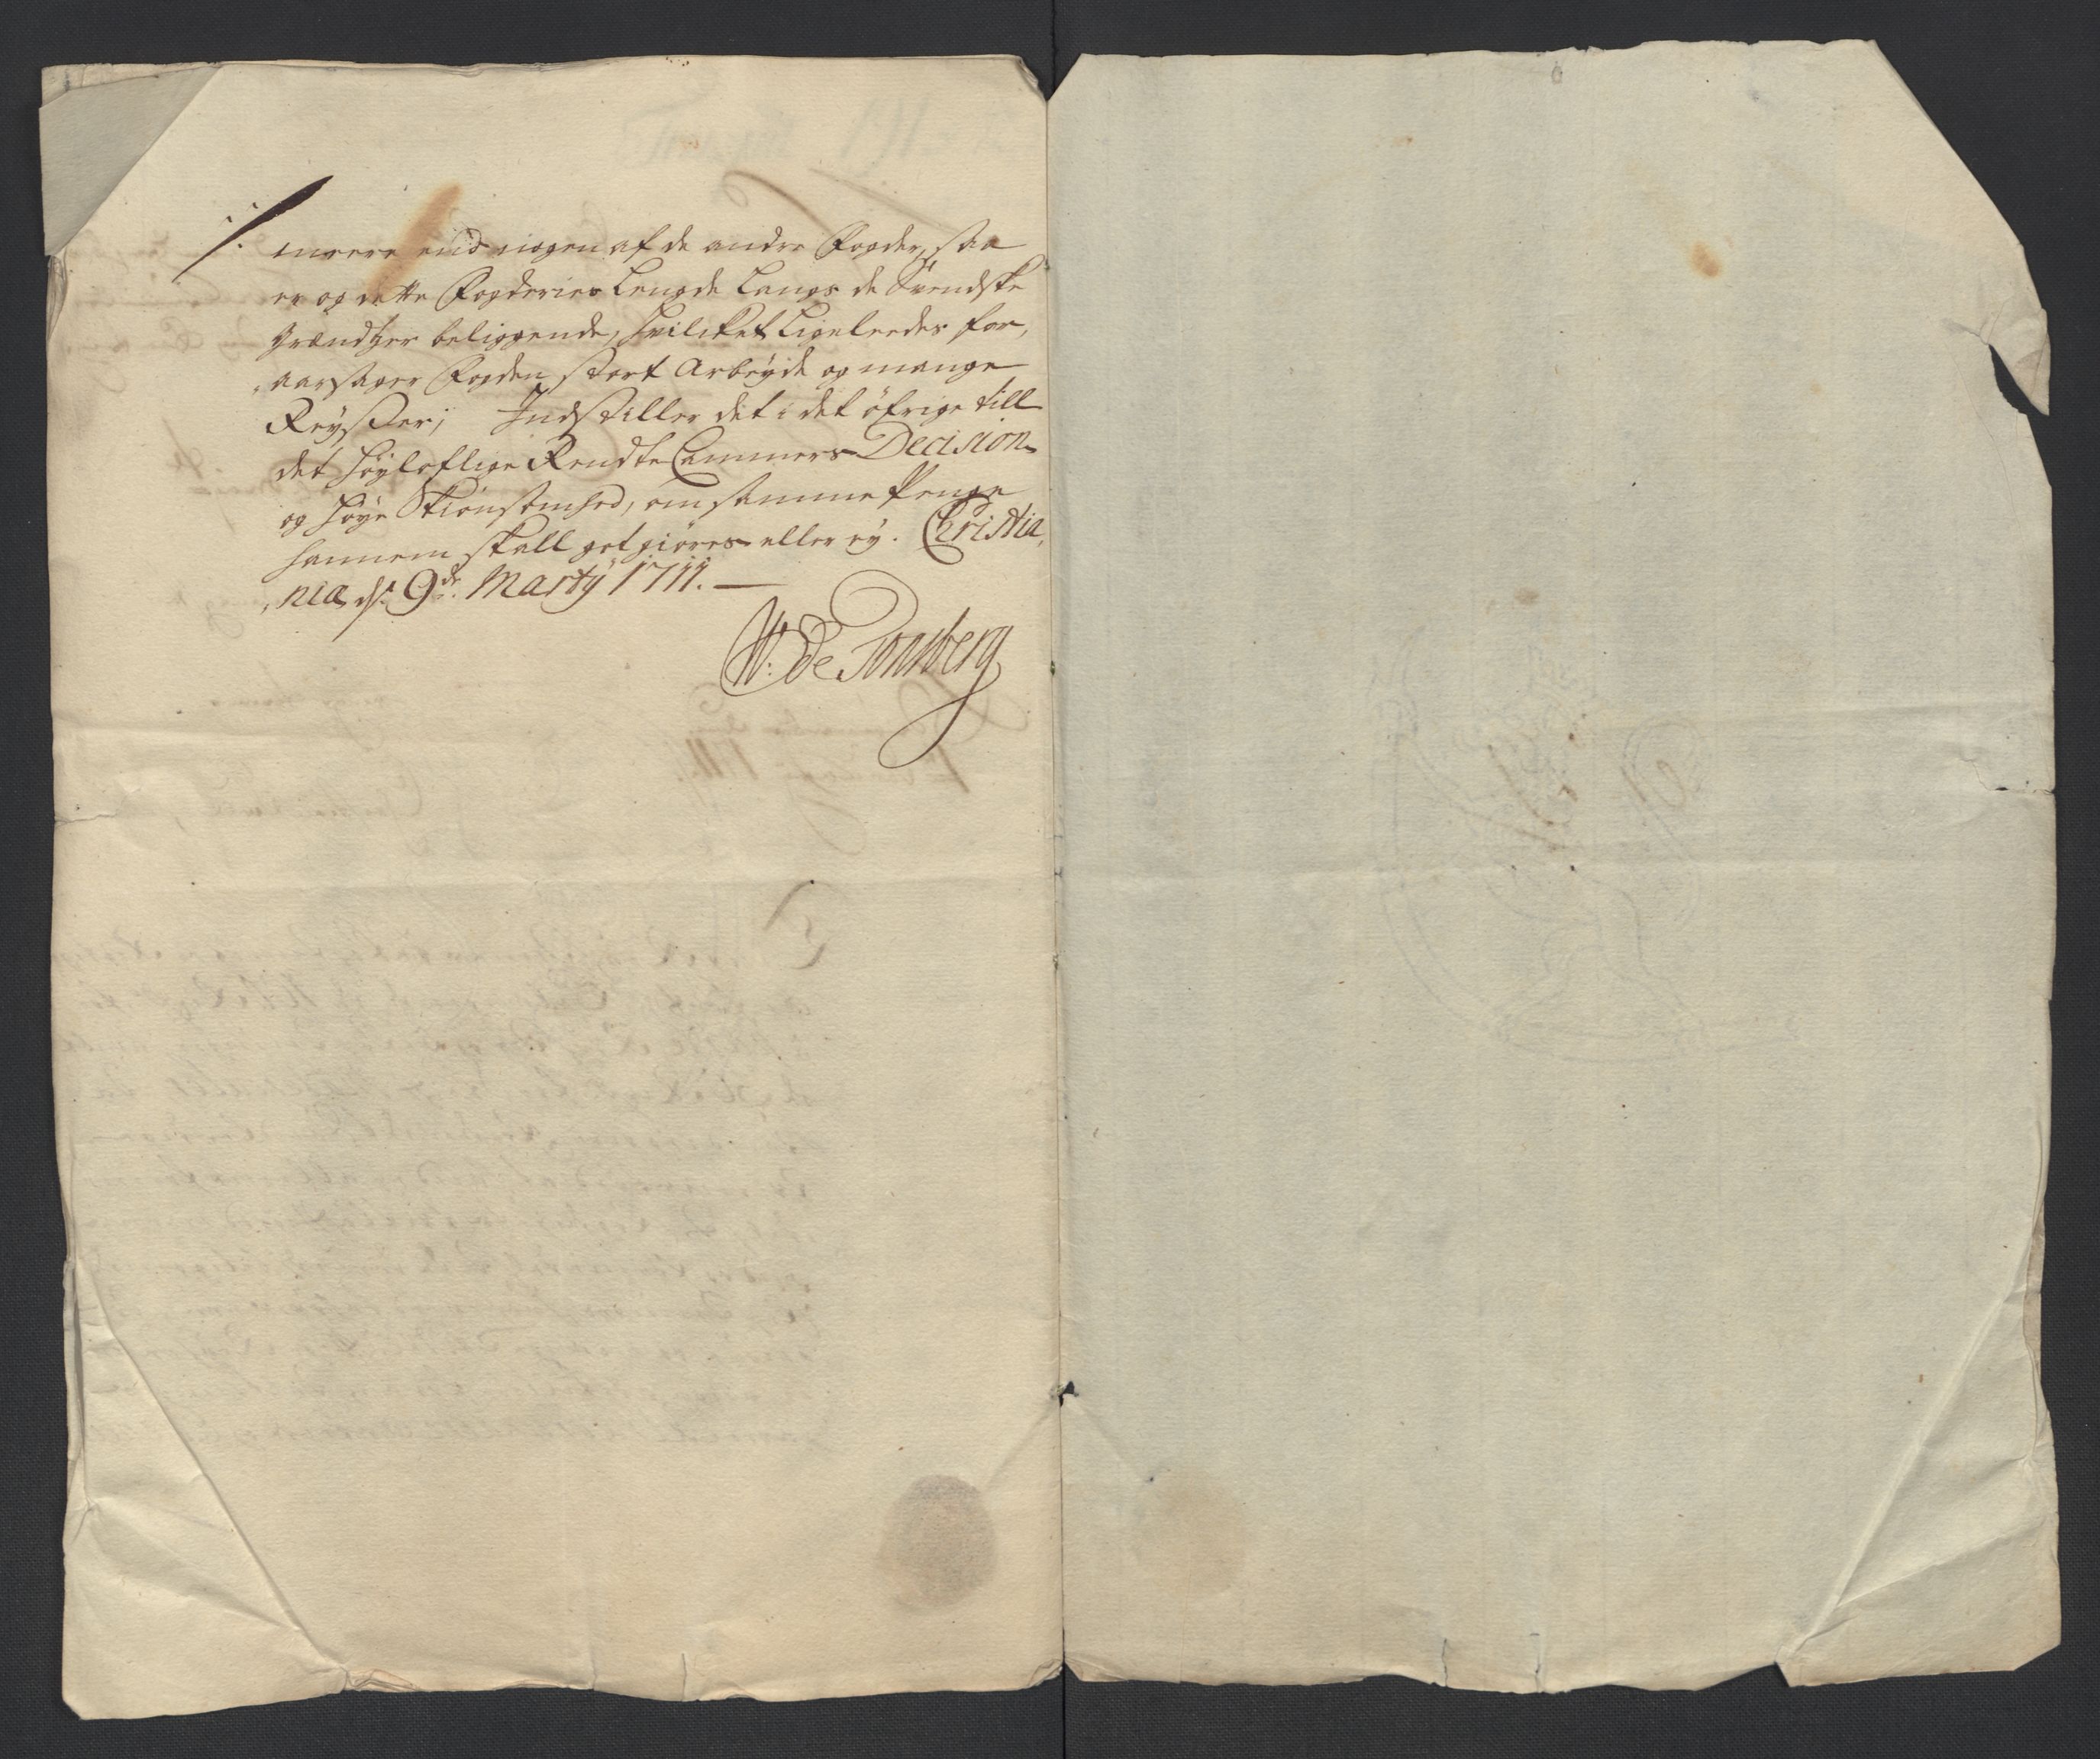 meere end nogen af de andre Fogder, saa
er og dette Fogderies Lengde Langs de Svendske
Grændtzer beliggende, hvilcket Ligeleedes for,
aarsager Fogden stort Arbeyde og mange
Reyszer; Indstiller det i det öfrige till
det höyloflige Rendte Cammers Decision
og höye Skiönsomhed, om samme Penge
hannem skall got giöres eller ey. Christia,
,nia, d. 9de. Martij 1711.
W: De Tonsberg